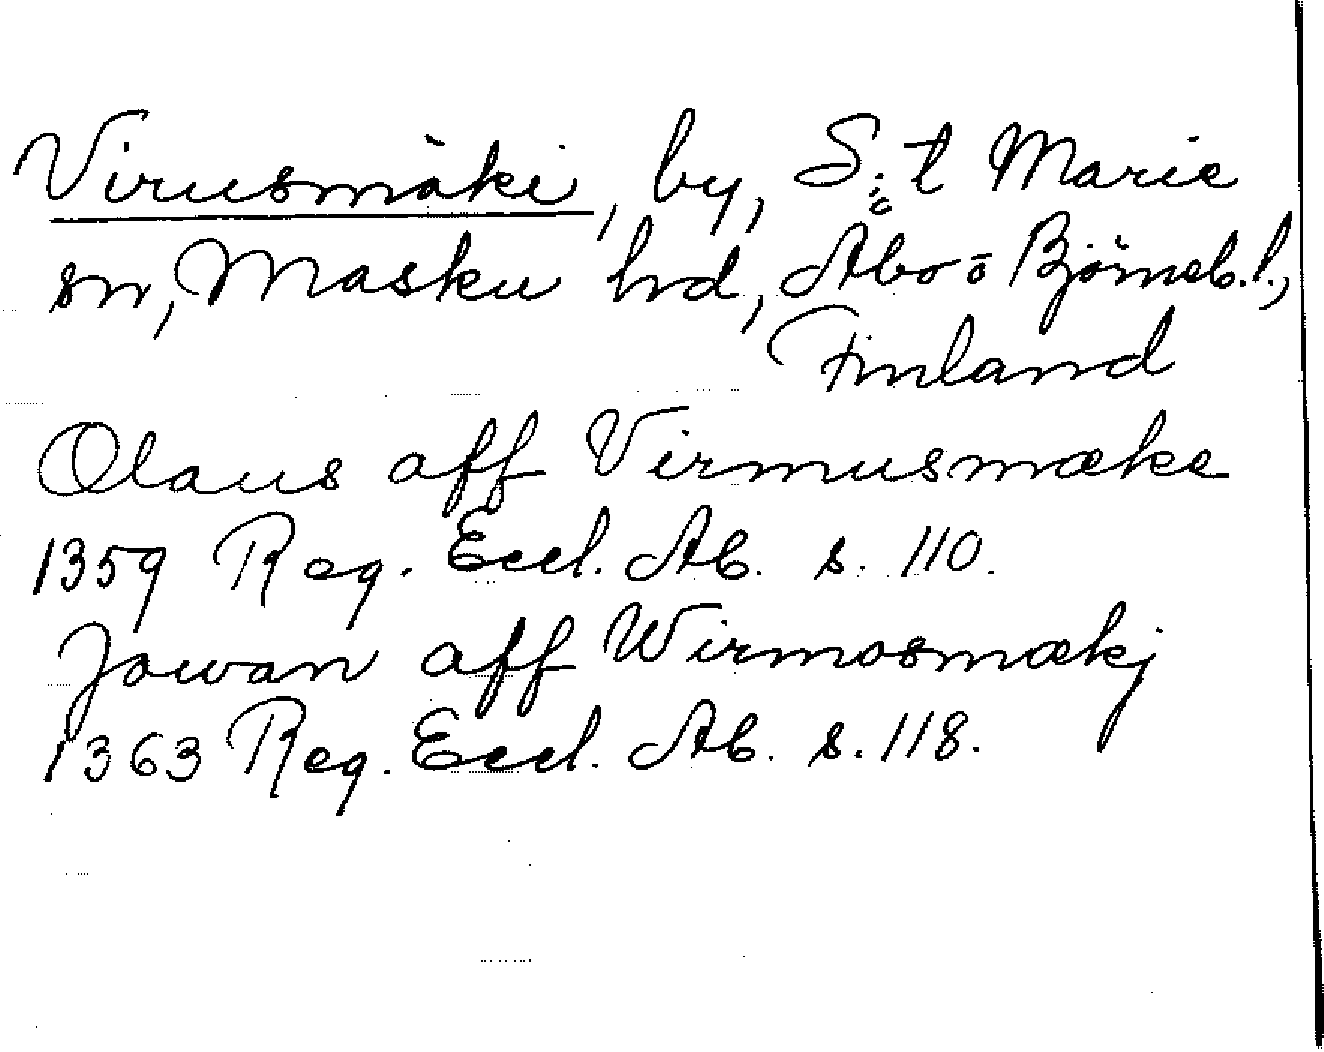 Virusmäki, by, S:t Marie
sn, Masku hd, Åbo o Björneb. l.,
Finland
Olaus aff Virmusmæke
1359 Reg. Eccl. Ab. s. 110.
Jowan aff Wirmosmækj
1363 Reg. Eccl. Ab. s. 118.